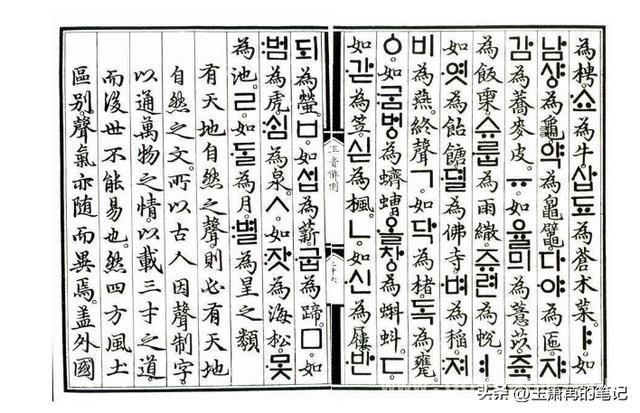 為梬。·쇼為牛。삽됴為蒼朮菜。ㅑ。如
남샤ᇰ為龜。약為𪓟鼊。다야為匜。쟈
감為蕎麥皮。ㅠ。如율믜為薏苡。쥭
為飯𣖄。슈룹為雨繖。쥬련為帨。ㅕ。
如·엿為飴餹。뎔為佛寺。·벼為稻。:져
비為燕。終聲ㄱ。如닥為楮。독為甕。
ㆁ。如:굼버ᇰ為蠐螬。·올차ᇰ為蝌蚪。ㄷ。
如·갇為笠。싣為楓。ㄴ。如·신為屨。·반
되為螢。ㅂ。如섭為薪。·굽為蹄。ㅁ。如
:범為虎。:ᄉᆡᆷ為泉。ㅅ。如:잣為海松。·못
為池。ㄹ。如·ᄃᆞᆯ為月。:별為星之類
有天地自然之聲。則必有天地
自然之文。所以古人因聲制字。
以通萬物之情。以載三才之道。
而後世不能易也。然四方風土
區別。聲氣亦隨而異焉。蓋外國
正音解例
二十六
头条@玉萧苒的笔记